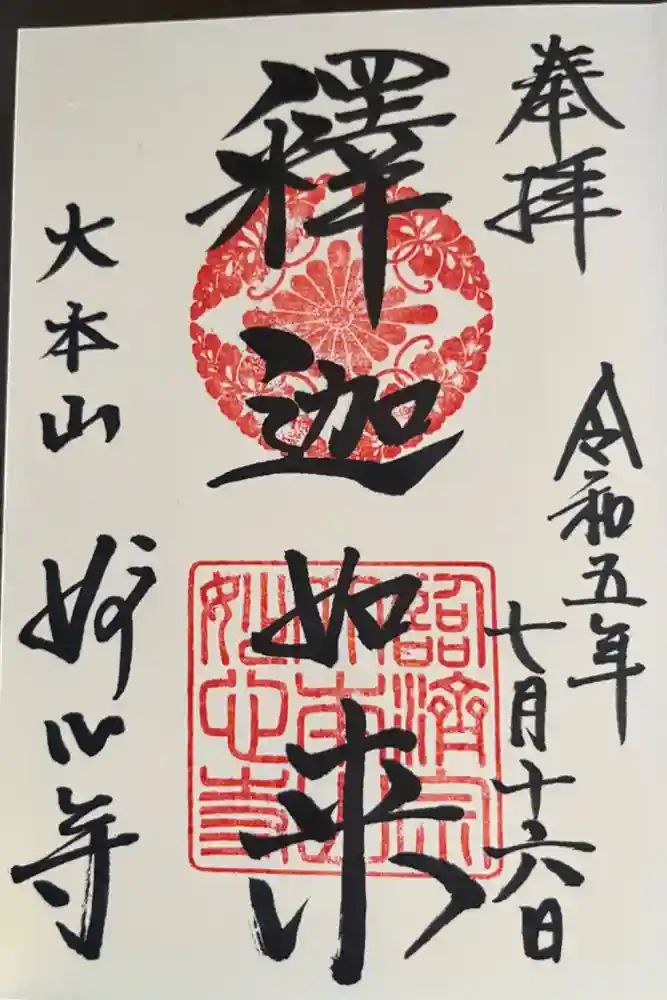 奉拝
令和五年
七月十六日
釋迦如来
臨済宗
大本山
妙心寺
大本山
妙心寺